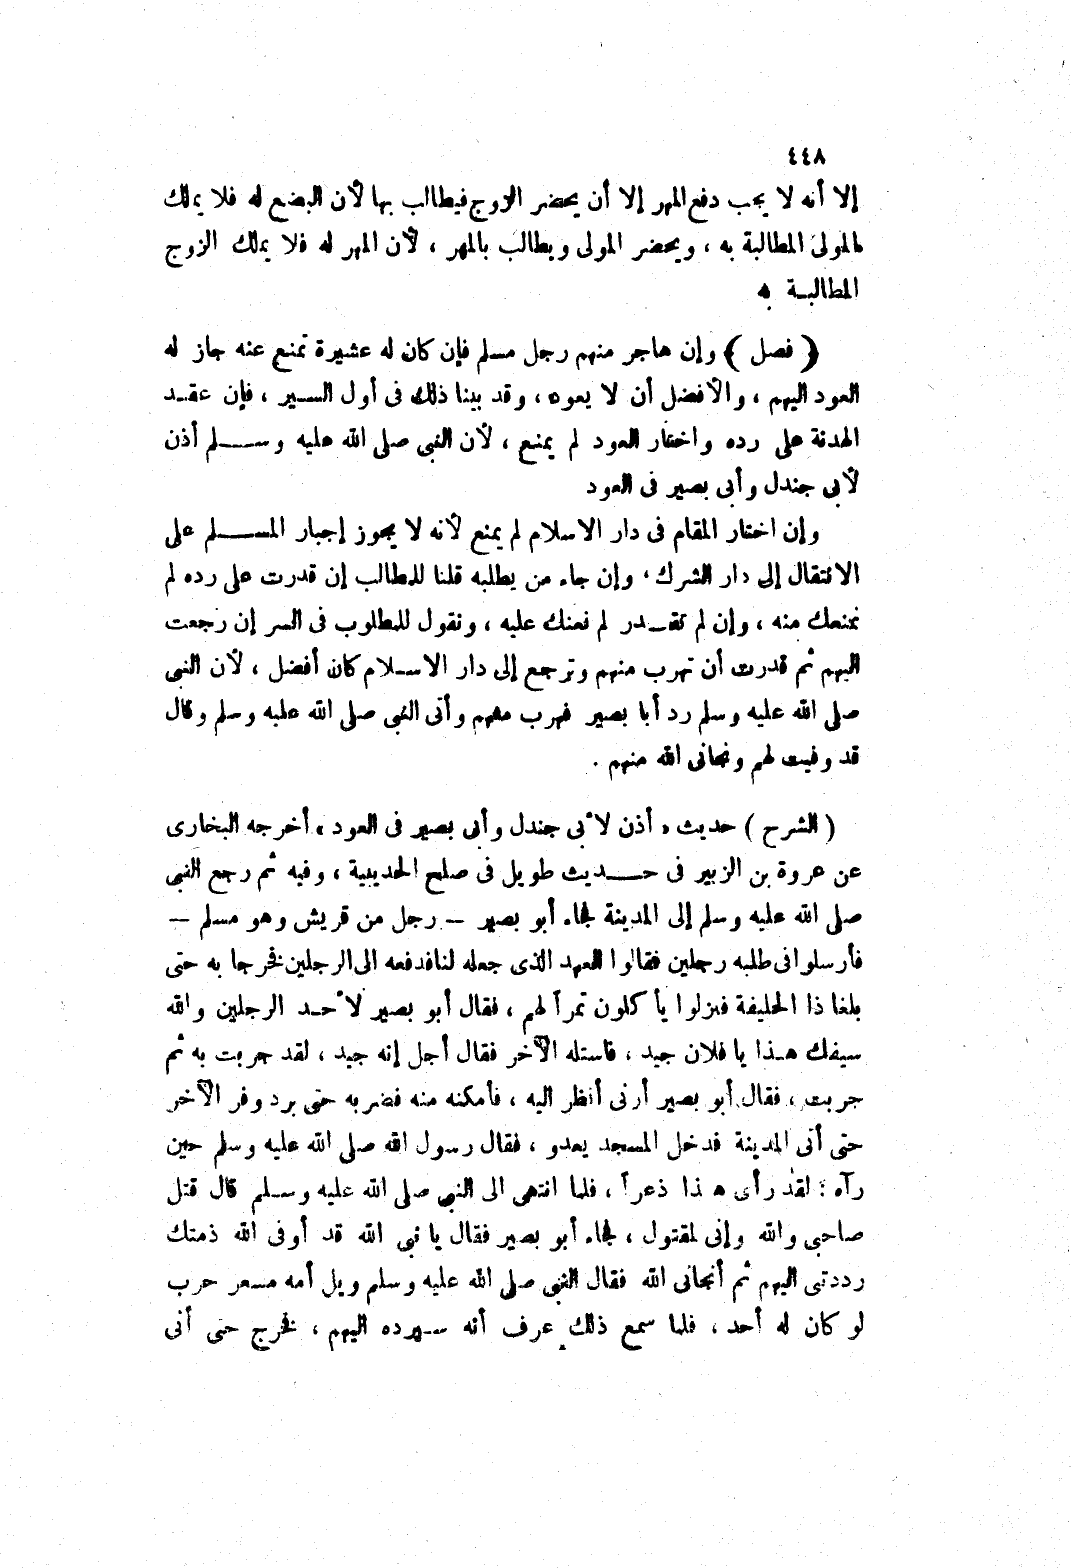 ٤٤٨
إلا أنه لا يجب دفع المهر إلا أن يحضر الزوج فيطالب بها لأن البضع له فلا يملك
المولى المطالبة به ، ويحضر المولى ويطالب بالمهر ، لأن المهر له فلا يملك الزوج
المطالبة به
( فصل ) وإن هاجر منهم رجل مسلم فإن كان له عشيرة تمنع عنه جاز له
العود اليهم ، والأفضل أن لا يعود ، وقد بينا ذلك فى أول السير ، فإن عقد
الهدنة على رده واختار العود لم يمنع ، لأن النبى صلى الله عليه وسلم أذن
لأبى جندل وأبى بصير فى العود
وإن اختار المقام فى دار الاسلام لم يمنع لأنه لا يجوز إجبار المسلم على
الانتقال إلى دار الشرك ، وإن جاء من يطلبه قلنا للمطالب إن قدرت على رده لم
نمنعك منه ، وإن لم تقدر لم نعنك عليه ، ونقول للمطلوب فى السر إن رجعت
اليهم ثم قدرت أن تهرب منهم وترجع إلى دار الاسلام كان أفضل ، لأن النبى
صلى الله عليه وسلم رد أبا بصير فهرب منهم وأتى النبى صلى الله عليه وسلم وقال
قد وفيت لهم ونجانى الله منهم .
( الشرح ) حديث « أذن لأبى جندل وأبى بصير فى العود » أخرجه البخارى
عن عروة بن الزبير فى حديث طويل فى صلح الحديبية ، وفيه ثم رجع النبى
صلى الله عليه وسلم إلى المدينة فجاء أبو بصير – رجل من قريش وهو مسلم –
فأرسلوا فى طلبه رجلين فقالوا العهد الذى جعله لنا فدفعه الى الرجلين فخرجا به حتى
بلغا ذا الحليفة فنزلوا يأكلون تمرا لهم ، فقال أبو بصير لأحد الرجلين والله
سيفك هذا يا فلان جيد ، فاستله الآخر فقال أجل إنه جيد ، لقد جربت به ثم
جربت ، فقال أبو بصير أرنى أنظر اليه ، فأمكنه منه فضربه حتى برد وفر الآخر
حتى أتى المدينة فدخل المسجد يعدو ، فقال رسول الله صلى الله عليه وسلم حين
رآه : لقد رأى هذا ذعرا ، فلما انتهى الى النبى صلى الله عليه وسلم قال قتل
صاحبى والله وإنى لمقتول ، فجاء أبو بصير فقال يا نبى الله قد أوفى الله ذمتك
رددتنى اليهم ثم أنجانى الله فقال النبى صلى الله عليه وسلم ويل أمه مسعر حرب
لو كان له أحد ، فلما سمع ذلك عرف أنه سيرده اليهم ، فخرج حتى أتى